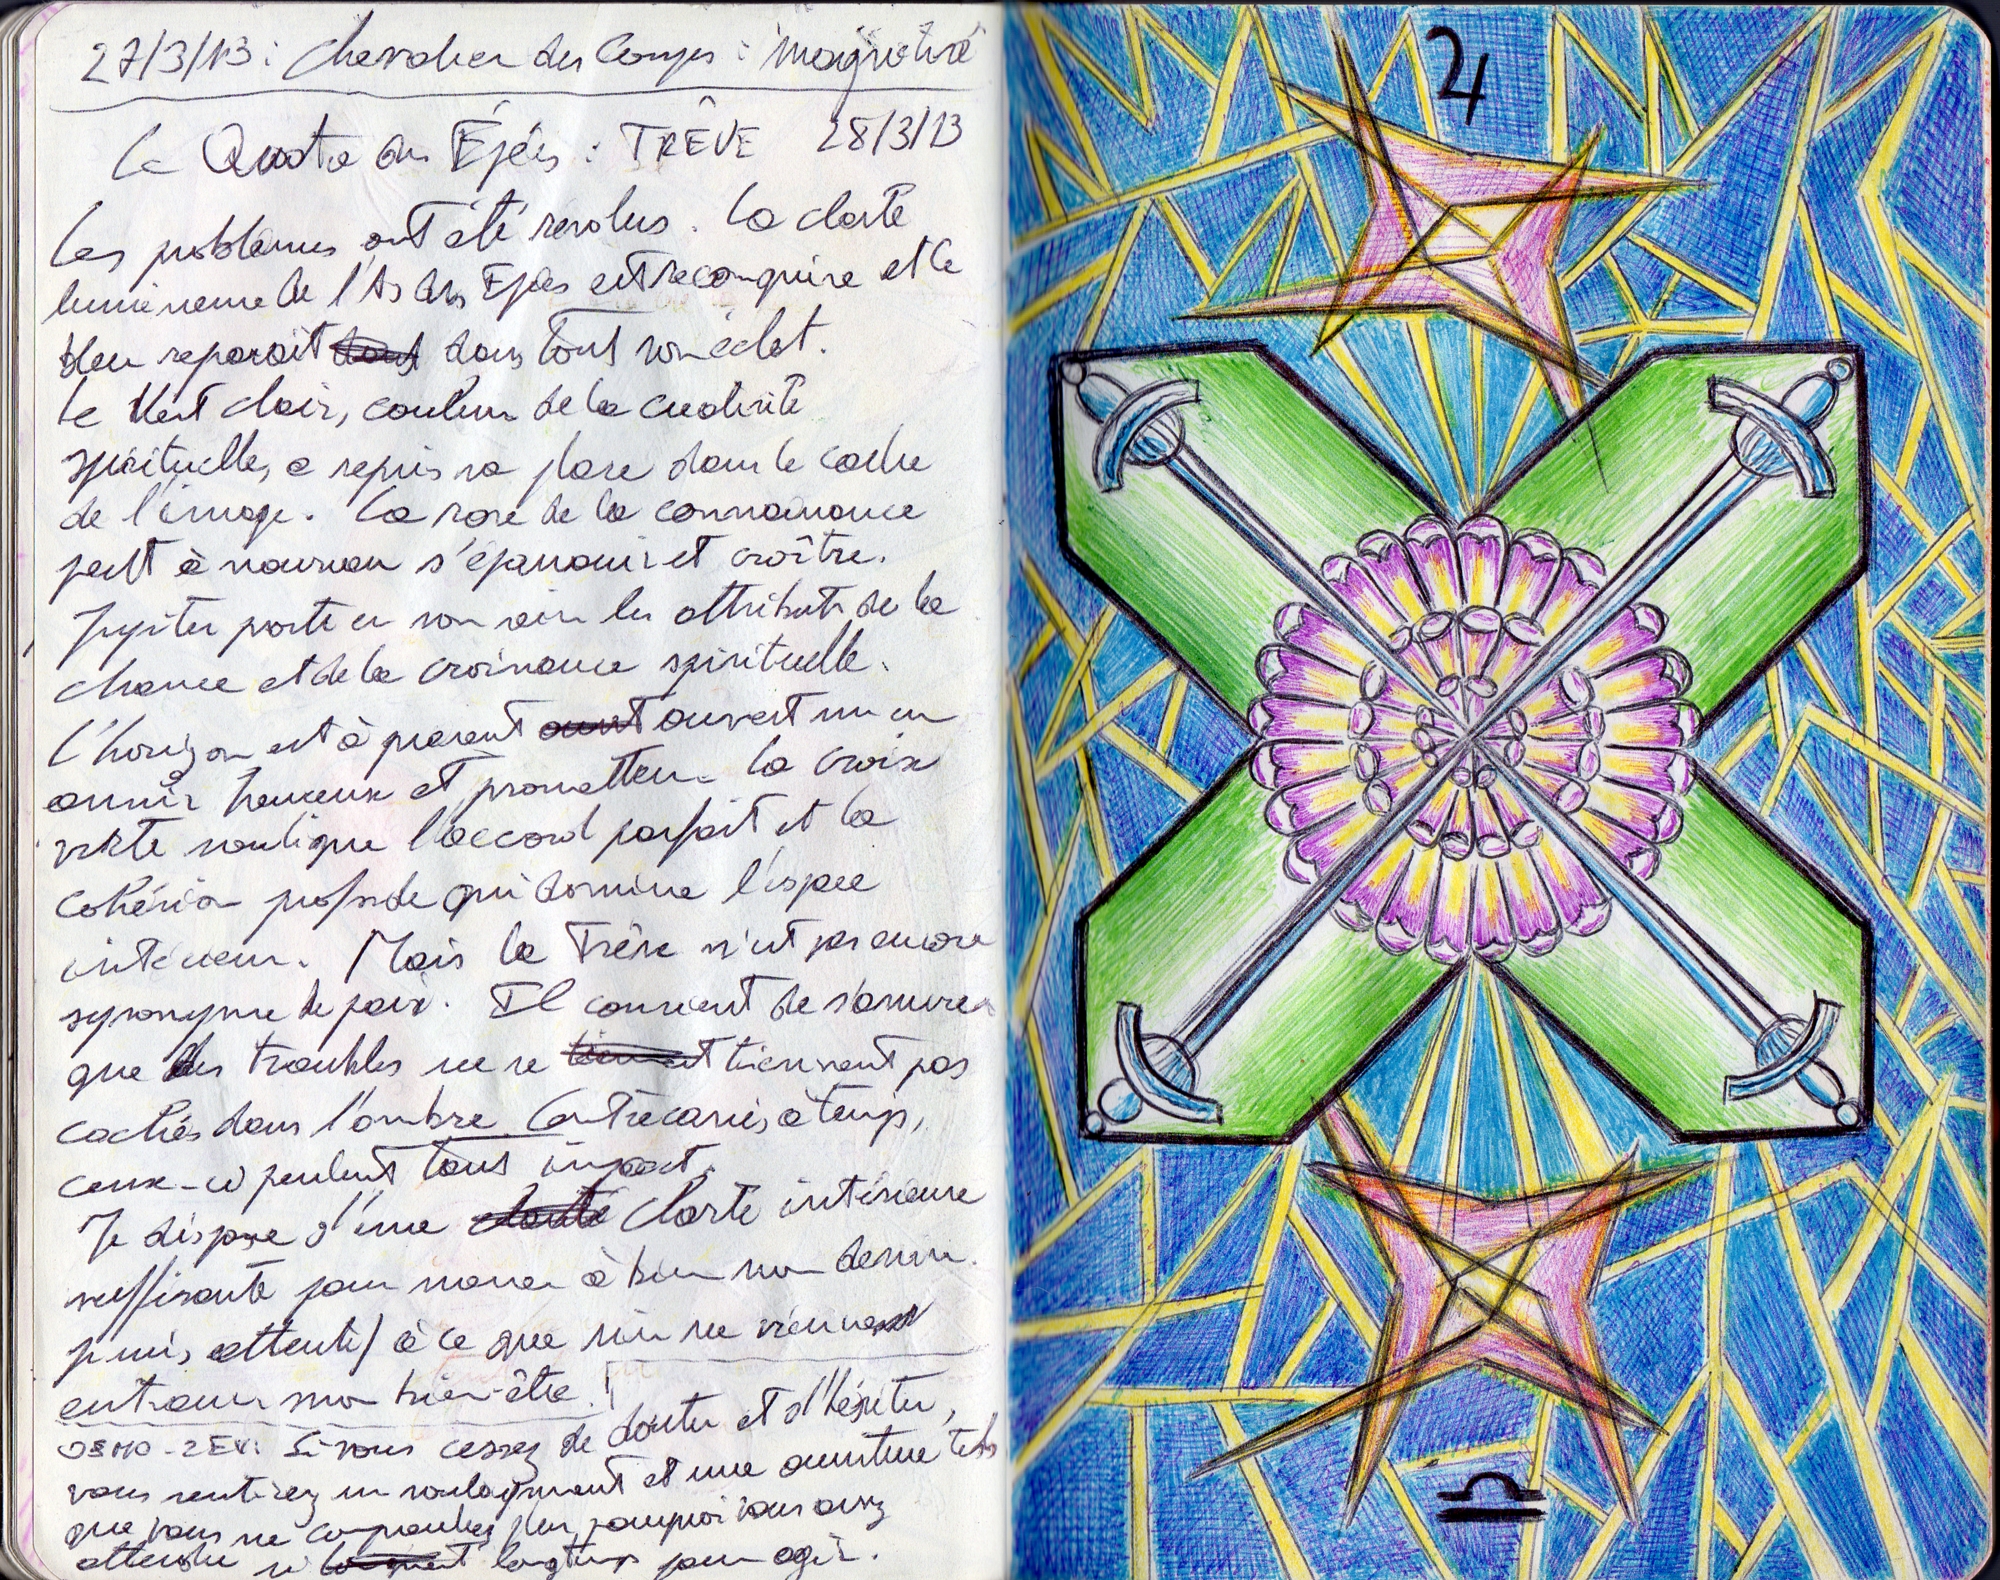 27/3/13 : Chevalier des Coupes : magnetisé
Le Quatre des Épées : TRÊVE 28/3/13
Les problèmes ont été résolus. La clarté
lumineuse de l'As des Épées est reconquise et le
bleu reparaît dans tout son éclat.
Le Vert clair, couleur de la créativité
spirituelle, a repris sa place dans le cadre
de l'image. La rose de la connaissance
peut à nouveau s'épanouir et croître.
Jupiter porte en son sein les attributs de la
chance et de la croissance spirituelle.
L'horizon est à présent ouvert sur un
avenir heureux et prometteur. La croix
verte souligne l'accord parfait et la
cohésion profonde qui domine l'espace
intérieur. Mais la Trêve n'est pas encore
synonyme de paix. Il convient de s'assurer
que des troubles ne se tiennent pas
cachés dans l'ombre. Contrecarrés à temps,
ceux-ci perdent tout impact.
Je dispose d'une clarté intérieure
suffisante pour mener à bien mon dessein.
suis attentif à ce que rien ne vienne
entraver mon bien-être !
Si vous cessez de douter et d'hésiter,
vous sentirez un soulagement et une ouverture tels
que vous ne comprendrez plus pourquoi vous avez
attendu si longtemps pour agir.
♃
♎